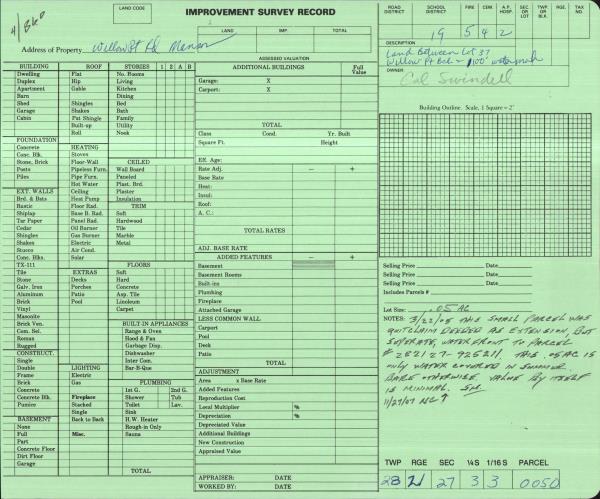 LAND CODE
IMPROVEMENT SURVEY RECORD
LAND IMP. TOTAL
Address of Property Willow Pt Rd Manson
ASSESSED VALUATION
ROAD DISTRICT SCHOOL DISTRICT FIRE CEM. A.P. HOSP. SEC. OR LOT TWP OR BLK. RGE. TAX NO.
19 5 4 2
DESCRIPTION
Land Between Lot 37
OWNER
Cal Swindell
Building Outline. Scale, 1 Square = 2'
BUILDING ROOF STORIES 1 2 A B
Dwelling Flat No. Rooms
Duplex Hip Living
Apartment Gable Kitchen
Barn Dining
Shed Shingles Bed
Garage Shakes Bath
Cabin Pat Shingle Family
Built-up Utility
Roll Nook
FOUNDATION
Concrete HEATING
Conc. Blk. Stoves
Stone, Brick Floor-Wall CEILED
Posts Pipeless Furn. Wall Board
Piles Pipe Furn. Paneled
Hot Water Plast. Brd.
EXT. WALLS Ceiling Plaster
Brd. & Bats Heat Pump Insulation
Rustic Floor Rad. TRIM
Shiplap Base B. Rad. Soft
Tar Paper Panel Rad. Hardwood
Cedar Oil Burner Tile
Shingles Gas Burner Marble
Shakes Electric Metal
Stucco Air Cond.
Conc. Blks. Solar
TX-111 FLOORS
Tile EXTRAS Soft
Stone Decks Hard
Galv. Iron Porches Concrete
Aluminum Patio Asp. Tile
Brick Pool Linoleum
Vinyl Carpet
Masonite
Brick Ven. BUILT-IN APPLIANCES
Com. Sel. Range & Oven
Roman Hood & Fan
Rugged Garbage Disp.
CONSTRUCT. Dishwasher
Single Inter Com.
Double LIGHTING Bar-B-Que
Frame Electric
Brick Gas PLUMBING
Concrete 1st G. 2nd G.
Concrete Blk. Fireplace Shower Tub
Pumice Stacked Toilet Lav.
Single Sink
BASEMENT Back to Back H.W. Heater
None Rough-in Only
Full Misc. Sauna
Part
Concrete Floor
Dirt Floor
Garage
TOTAL
ADDITIONAL BUILDINGS Full Value
Garage: X
Carport: X
TOTAL
Class Cond. Yr. Built
Square Ft. Height
Eff. Age:
Rate Adj. – +
Base Rate
Heat:
Insul:
Roof:
A. C.:
TOTAL RATES
ADJ. BASE RATE
ADDED FEATURES – +
Basement
Basement Rooms
Built-ins
Plumbing
Fireplace
Attached Garage
LESS COMMON WALL
Carport
Pool
Deck
Patio
TOTAL
ADJUSTMENT
Area x Base Rate
Added Features
Reproduction Cost
Local Multiplier %
Depreciation %
Depreciated Value
Additional Buildings
New Construction
Appraised Value
APPRAISER: DATE
WORKED BY: DATE
Selling Price Date
Selling Price Date
Selling Price Date
Includes Parcel #s
Lot Size: .05 AC
NOTES: 3/22/05 THIS SMALL PARCEL WAS
QUITCLAIM DEEDED AS EXTENSION, BUT
SEPERATE, WATERFRONT TO PARCEL
# 282127-925211. THIS .05AC IS
ONLY WATER COVERED IN SUMMER.
BARE OTHERWISE VALUE BY ITSELF
IS MINIMAL.
TWP RGE SEC ¼S 1/16 S PARCEL
28 21 27 3 3 0050